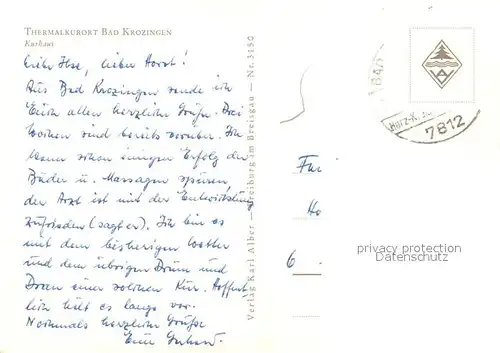 THERMALKURORT BAD KROZINGEN
Kurhaus
Liebe Ilse, lieber Horst!
Aus Bad Krozingen sende ich
Euch allen herzliche Grüße. Drei
Wochen sind bereits vorüber. Ich
kann schon einigen Erfolg der
Bäder u. Massagen spüren,
der Arzt ist mit der Entwicklung
zufrieden (sagt er). Ich bin es
mit dem bisherigen Wetter
und dem übrigen Drum und
Dran einer solchen Kur. Hoffent
lich hält es lange vor.
Nochmals herzliche Grüße
Euer
Verlag Karl Alber — Freiburg im Breisgau — Nr. 3150
Herz-K
7812
Fa
Ho
6
privacy protection
Datenschutz